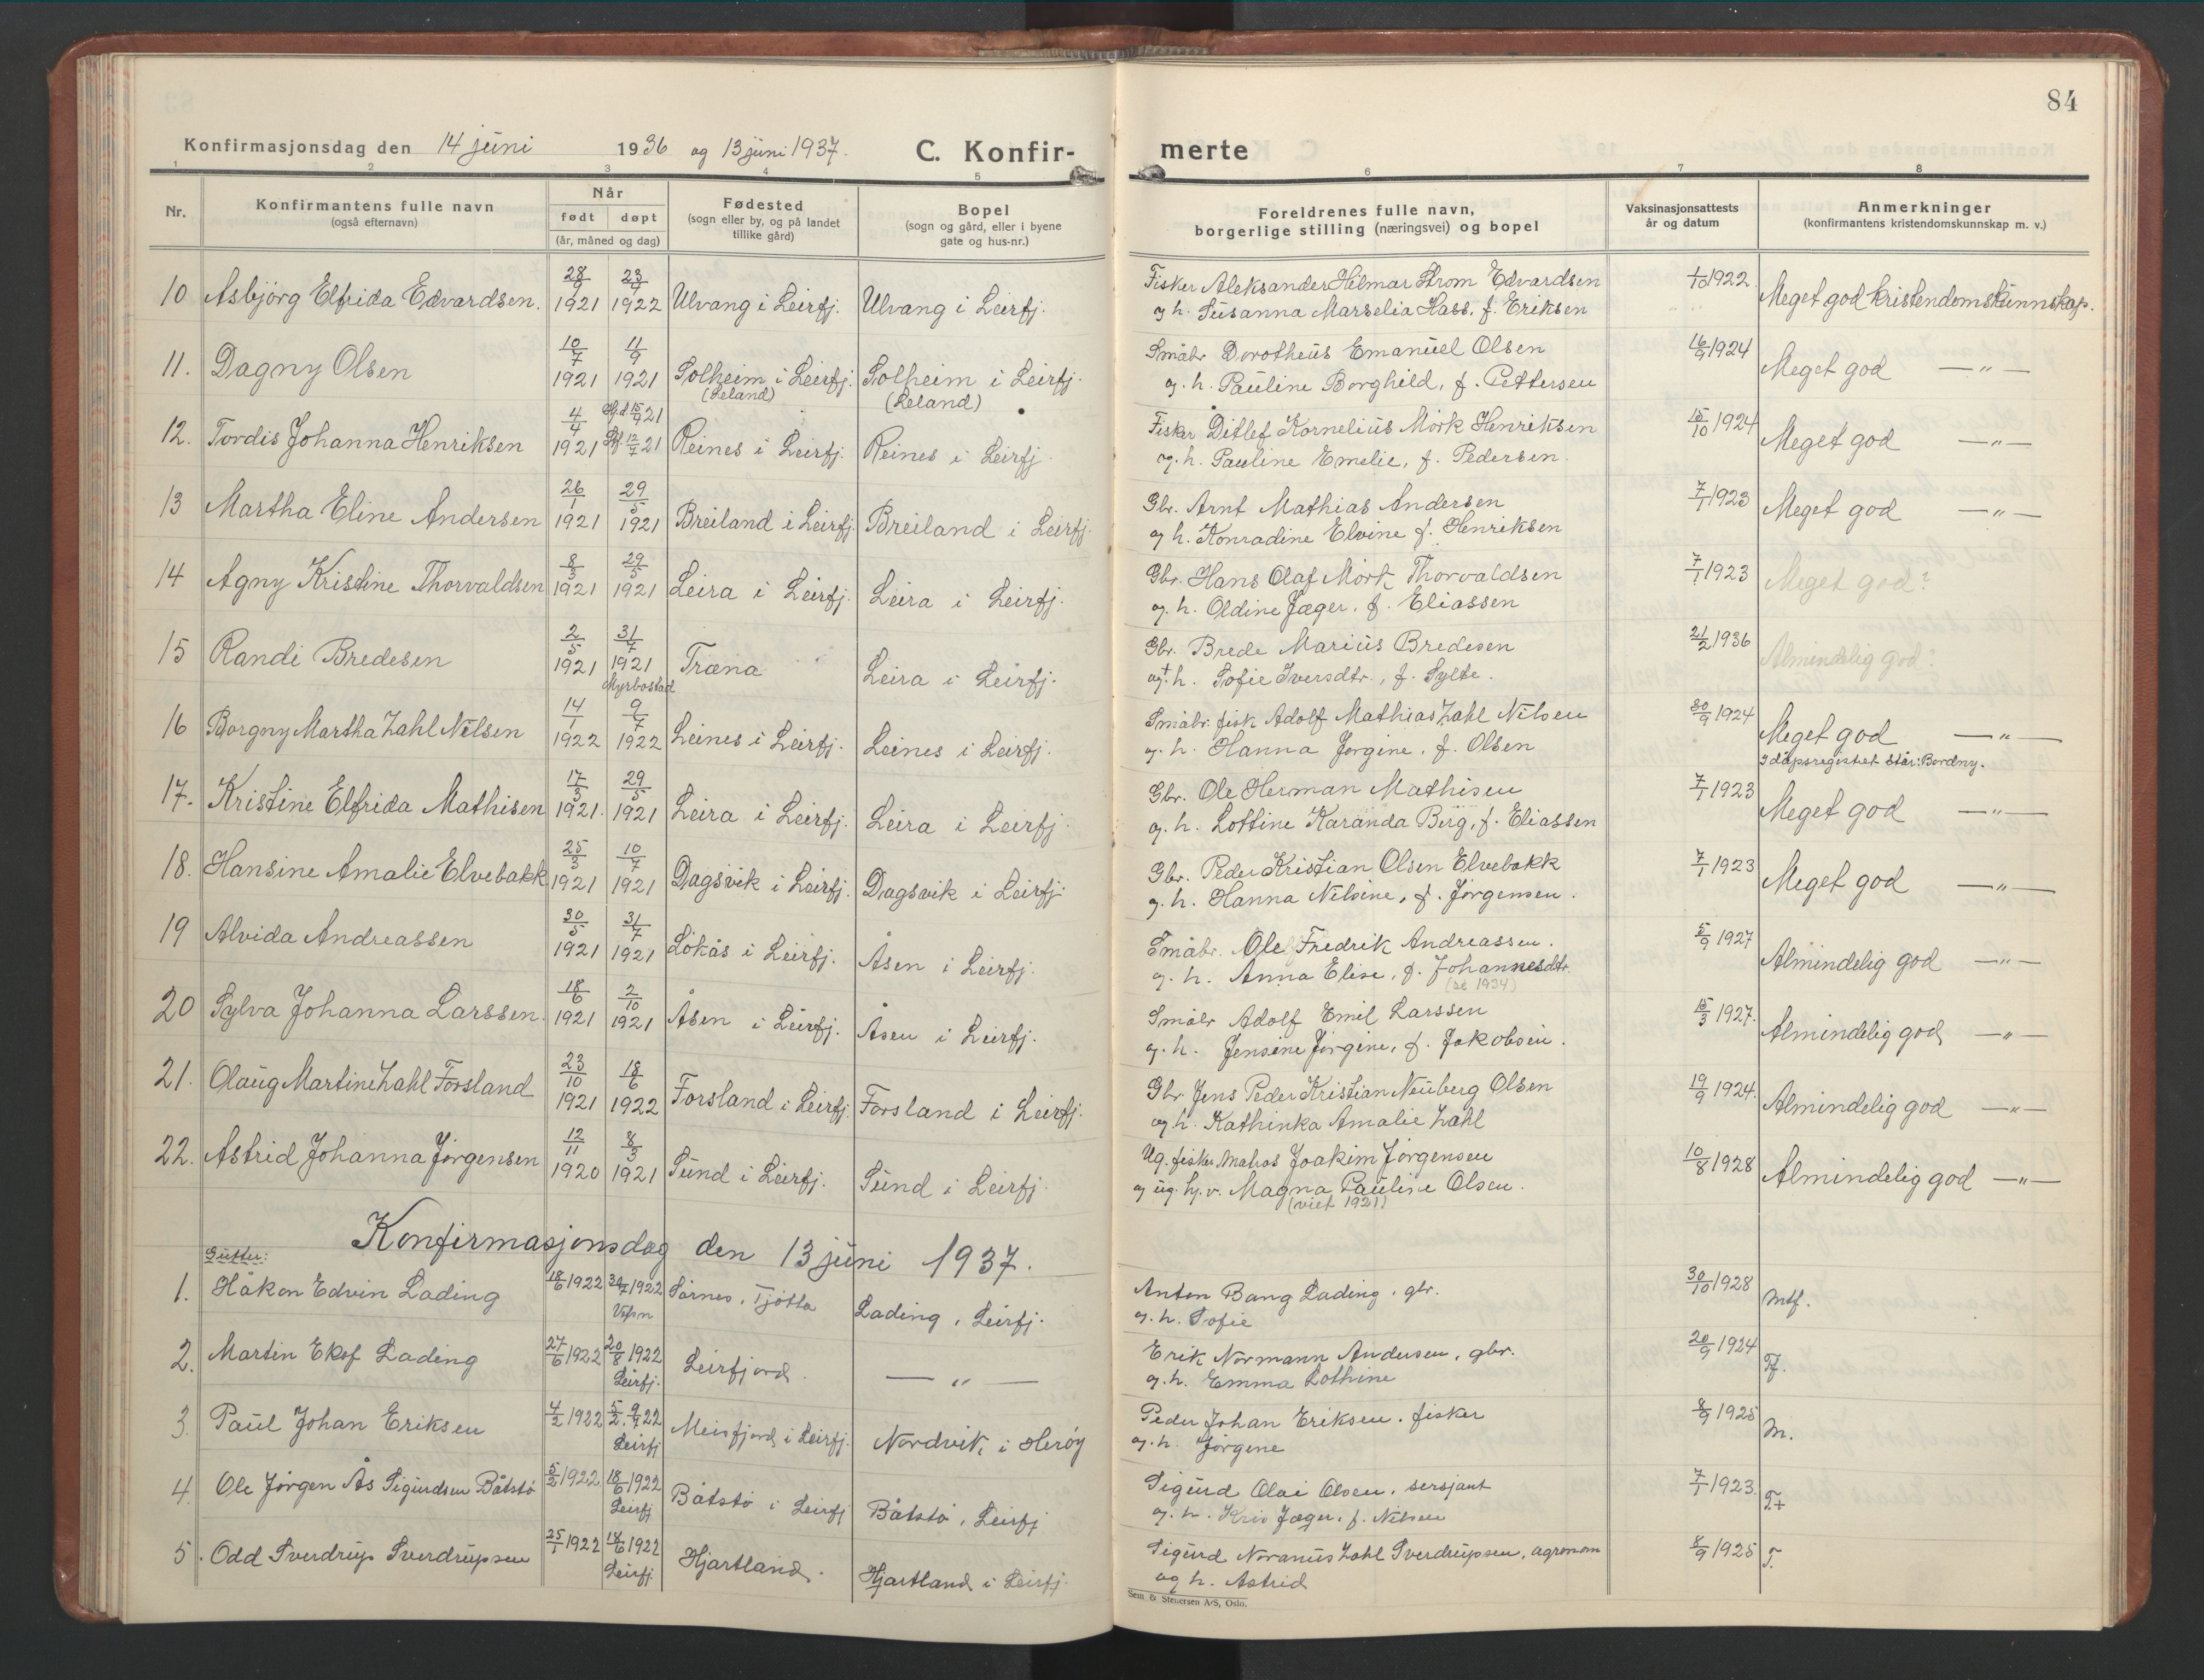 84
Konfirmasjonsdag den 14 juni 1936 og 13 juni 1937. C. Konfir- merte
1 2 3 4 5 6 7 8
Nr. Konfirmantens fulle navn (også efternavn) Når født døpt (år, måned og dag) Fødested (sogn eller by, og på landet tillike gård) Bopel (sogn og gård, eller i byene gate og hus-nr.) Foreldrenes fulle navn, borgerlige stilling (næringsvei) og bopel Vaksinasjonsattests år og datum Anmerkninger (konfirmantens kristendomskunnskap m. v.)
10 Asbjörg Elfrida Edvardsen. 28/9 1921 23/4 1922 Ulvang i Leirfj. Ulvang i Leirfj. Fisker Aleksander Hilmar Strom Edvardsen 1/10 1922 Meget god kristendomskunnskap.
og h. Susanna Marselia Hass, f. Eriksen
11. Dagny Olsen 10/7 1921 11/9 1921 Solheim i Leirfj. (Leland) Solheim i Leirfj. (Leland) Småbr Dorotheus Emanuel Olsen 16/9 1924 Meget god —"—
og. h. Pauline Borghild, f. Pettersen
12. Tordis Johanna Henriksen 4/4 1921 Hj.d 15/4 21 12/7 21 Reines i Leirfj. Reines i Leirfj. Fisker Ditlef Kornelius Mörk Henriksen 15/10 1924 Meget god —"—
og. h. Pauline Emelie, f. Pedersen.
13 Martha Eline Andersen 26/1 1921 29/5 1921 Breiland i Leirfj Breiland i Leirfj. Gbr. Arnt Mathias Andersen 7/1 1923 Meget god —"—
og h. Konradine Elvine f. Henriksen
14 Agny Kristine Thorvaldsen 8/3 1921 29/5 1921 Leira i Leirfj. Leira i Leirfj. Gbr. Hans Olaf Mörk Thorvaldsen 7/1 1923 Meget god?
og. h. Oldine Jæger, f. Eliassen
15 Randi Bredesen 2/5 1921 31/7 1921 Myrbostad Træna Leira i Leirfj. Gbr. Brede Marius Bredesen 21/2 1936 Almindelig god?
og † h. Sofie Iversdtr., f. Sylte.
16 Borgny Martha Zahl Nilsen 14/1 1922 9/7 1922 Leines i Leirfj. Leines i Leirfj. Småbr. fisk Adolf Mathias Zahl Nilsen 30/9 1924 Meget god —"—
og. h. Hanna Jørgine, f. Olsen I dåpsregistret står: Bordny.
17. Kristine Elfrida Mathisen 17/3 1921. 29/5 1921 Leira i Leirfj. Leira i Leirfj. Gbr. Ole Herman Mathisen 7/1 1923 Meget god —"—
og. h. Lottine Karanda Berg, f. Eliassen
18. Hansine Amalie Elvebakk 25/3 1921 10/7 1921 Dagsvik i Leirfj. Dagsvik i Leirfj. Gbr. Peder Kristian Olsen Elvebakk 7/1 1923 Meget god —"—
og. h. Hanna Nilsine, f. Jørgensen.
19 Alvida Andreassen 30/5 1921 31/7 1921 Lökås i Leirfj. Åsen i Leirfj. Småbr. Ole Fredrik Andreassen. 5/9 1927 Almindelig god —"—
og. h. Anna Elise, f. Johannesdtr. (se 1934)
20 Sylva Johanna Larssen. 18/6 1921 2/10 1921 Åsen i Leirfj. Åsen i Leirfj. Småbr Adolf Emil Larssen 15/3 1927. Almindelig god —"—
og. h. Jensine Jörgine, f. Jakobsen.
21. Olaug Martine Zahl Forsland 23/10 1921 18/6 1922 Forsland i Leirfj. Forsland i Leirfj. Gbr Jens Peder Kristian Neuberg Olsen 19/9 1924. Almindelig god —"—
og h. Kathinka Amalie Zahl
22. Astrid Johanna Jörgensen 12/11 1920 8/3 1921 Sund i Leirfj. Sund i Leirfj. Ug. fisker, matros Joakim Jörgensen 10/8 1928 Almindelig god —"—
og ug. hj. v. Magna Pauline Olsen. (viet 1921)
Konfirmasjonsdag den 13 juni 1937.
Gutter:
1. Håkon Edvin Lading 18/6 1922 30/7 1922 Vefsn Sørnes, Tjötta Lading, Leirfj. Anton Bang Lading, gbr. 30/10 1928 Mtf.
og. h. Sofie
2. Martin Lading 27/6 1922 20/8 1922 Leirfj. Leirfjord. —"— Erik Normann Andersen, gbr. 20/9 1924 Tf.
og. h. Emma Lothine
3. Paul Johan Eriksen 4/2 1922 5/2. 9/7 22 Leirfj Meisfjord i Leirfj. Nordvik, i Herøy Peder Johan Eriksen, fisker 8/9 1925 M.
og. h. Jörgene
4. Ole Jörgen Ås Sigurdsen Båtstö 5/2 1922 18/6 1922 Leirfj Båtstö i Leirfj Båtstö, Leirfj Sigurd Olai Olsen, sersjant 7/1 1923. T+
og. h. Jæger, f. Nilsen
5. Odd Sverdrup Sverdrupsen 25/1 1922 18/6 1922 Leirfj. Hjartland. Hjartland i Leirfj. Sigurd Noranus Zahl Sverdrupsen, agronom 8/9 1925 T.
og h. Astrid
Sem & Stenersen A/S, Oslo.